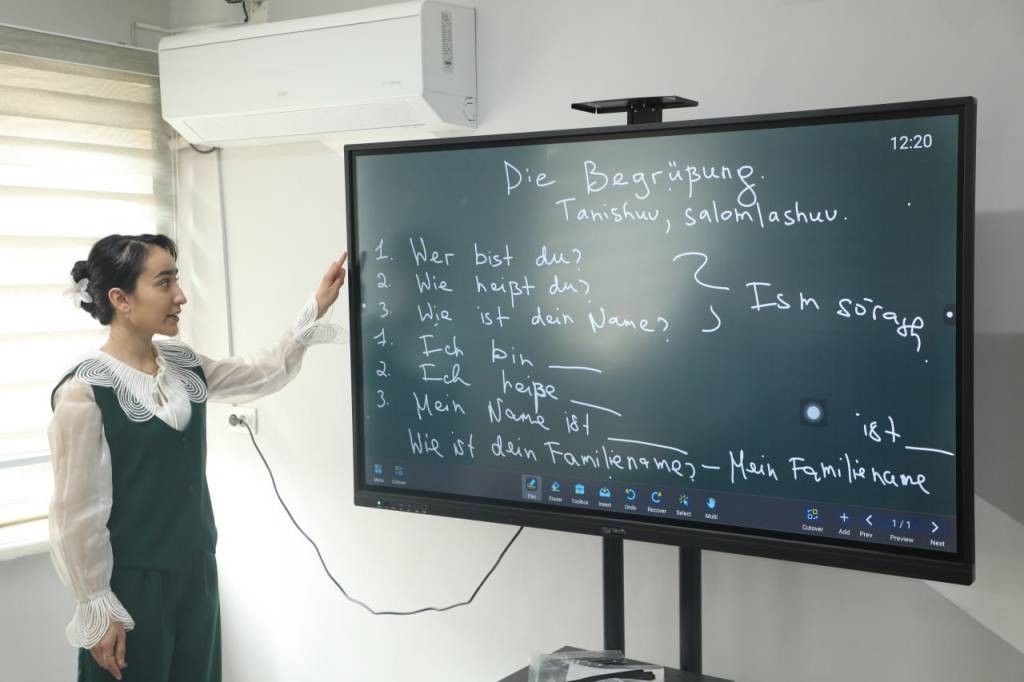 12:20
Die Begrüßung.
Tanishuv, salomlashuv.
1. Wer bist du?
2. Wie heißt du?
3. Wie ist dein Name?
Ism so'rash
1. Ich bin ___
2. Ich heiße ___
3. Mein Name ist ___
Wie ist dein Familiename? – Mein Familiename ist ___
Menu Cutover Pen Eraser Toolbox Insert Undo Recover Select Multi Cutover Add Prev 1 / 1 Preview Next